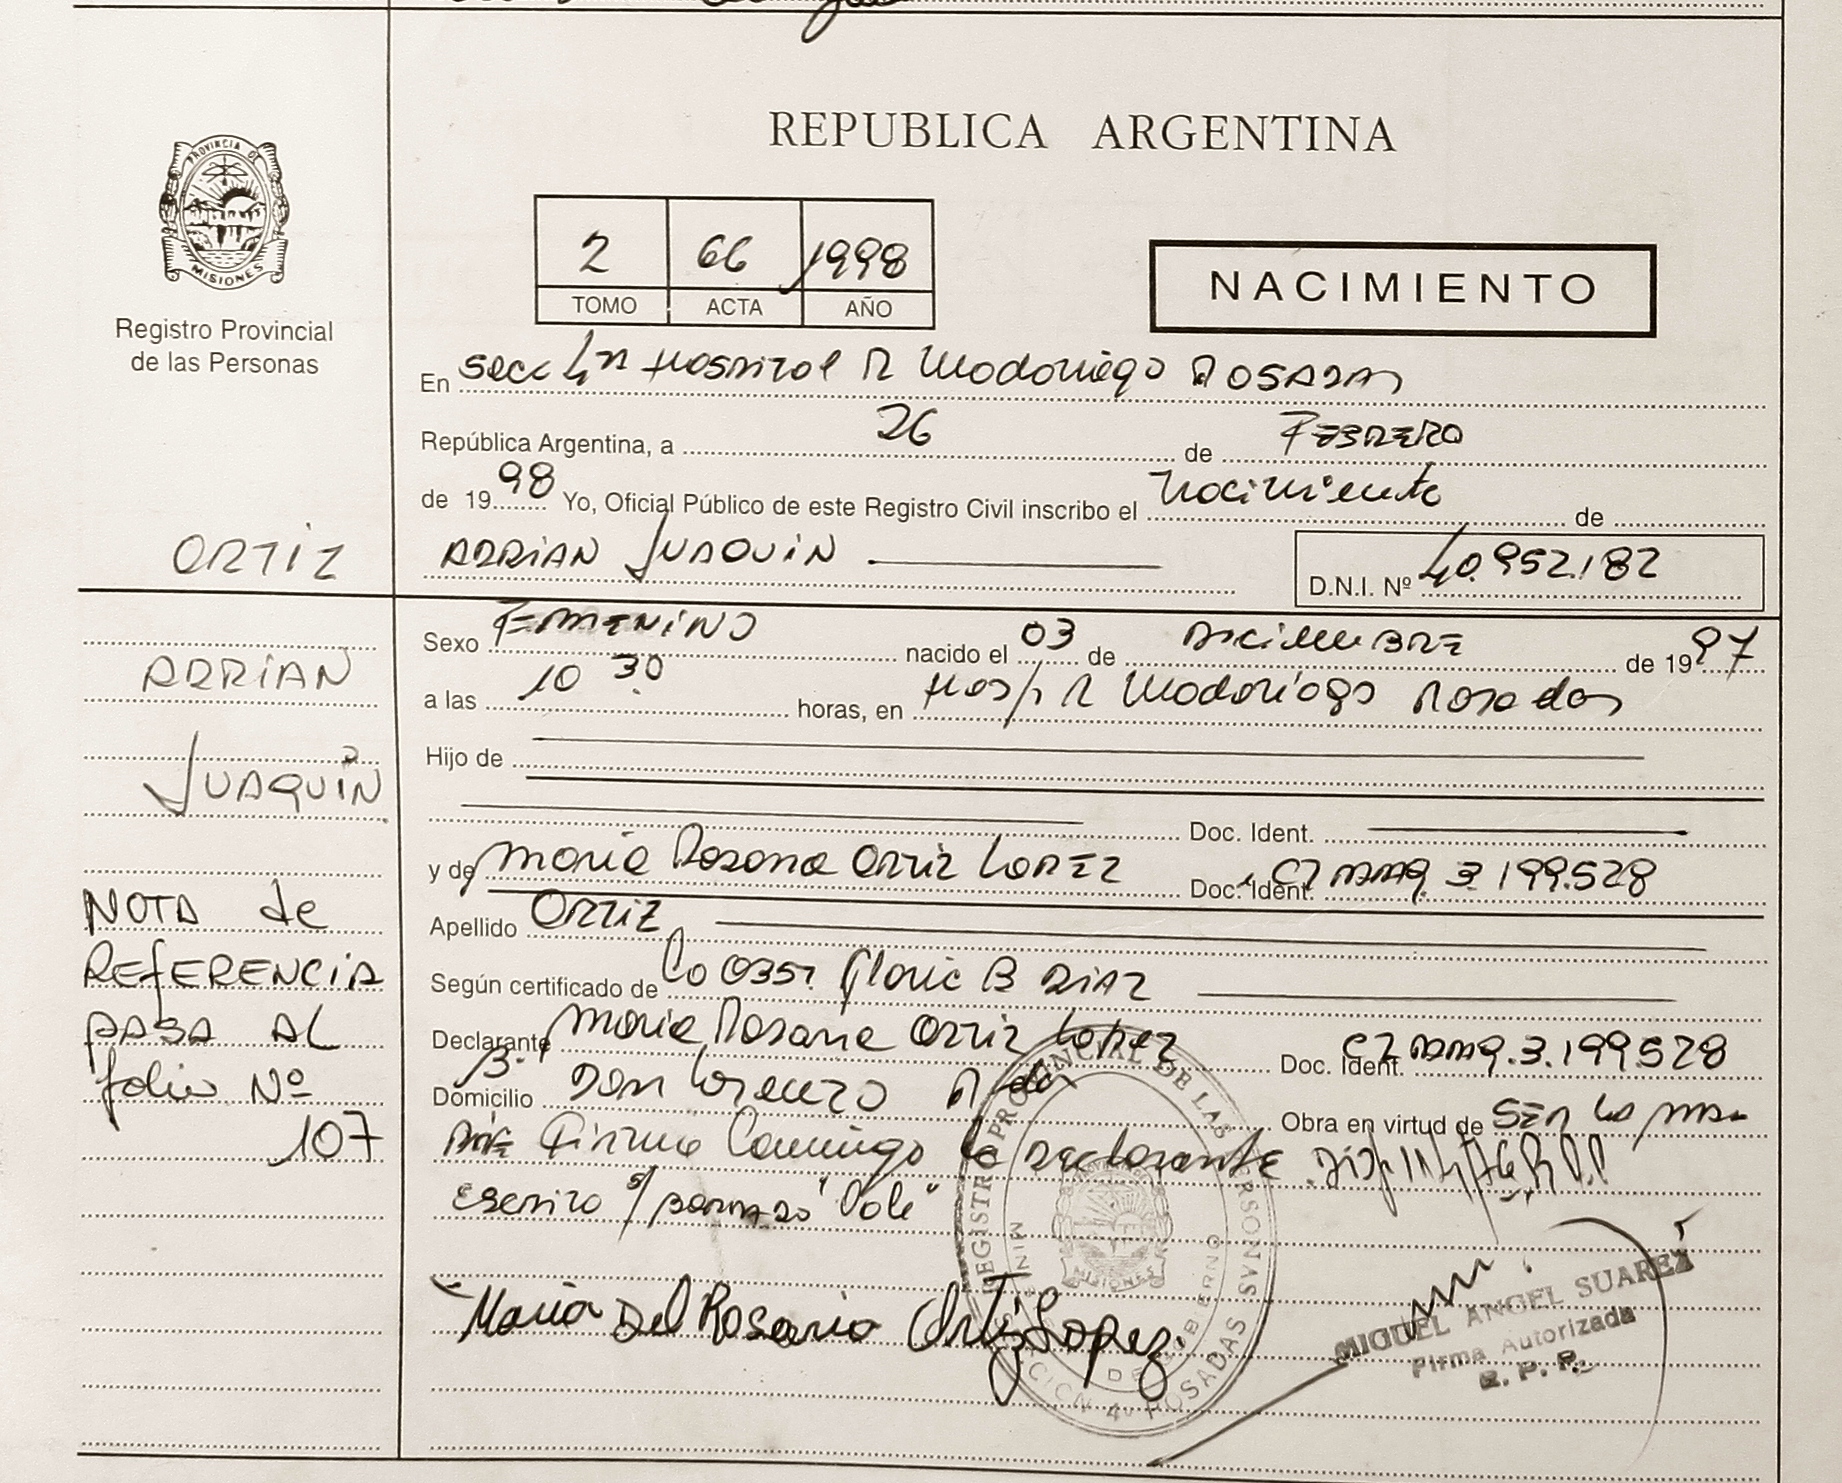 PROVINCIA DE
MISIONES
Registro Provincial
de las Personas
REPUBLICA ARGENTINA
2 66 1998
TOMO ACTA AÑO
NACIMIENTO
En secc 4ta Hospital R Madariaga POSADAS
República Argentina, a 26 de FEBRERO
de 1998 Yo, Oficial Público de este Registro Civil inscribo el nacimiento de
ADRIAN JUAQUIN D.N.I. Nº 40.952.182
ORTIZ
ADRIAN
JUAQUIN
NOTA de
REFERENCIA
PASA AL
folio Nº
107
Sexo FEMENINO nacido el 03 de DICIEMBRE de 1997
a las 10 30 horas, en Hosp R Madariaga Posadas
Hijo de
Doc. Ident.
y de Maria Rosana Ortiz LOPEZ Doc. Ident. 3.199.528
Apellido ORTIZ
Según certificado de Gloria B DIAZ
Declarante Maria Rosana Ortiz Lopez Doc. Ident. 3.199528
Domicilio B. Don Lorenzo Obra en virtud de SER la
Firma Conmigo la declarante
Escrito s/ borrado "Vale"
Maria Del Rosario Ortiz Lopez
REGISTRO PROVINCIAL DE LAS PERSONAS
POSADAS
MIGUEL ANGEL SUAREZ
Firma Autorizada
R. P. P.